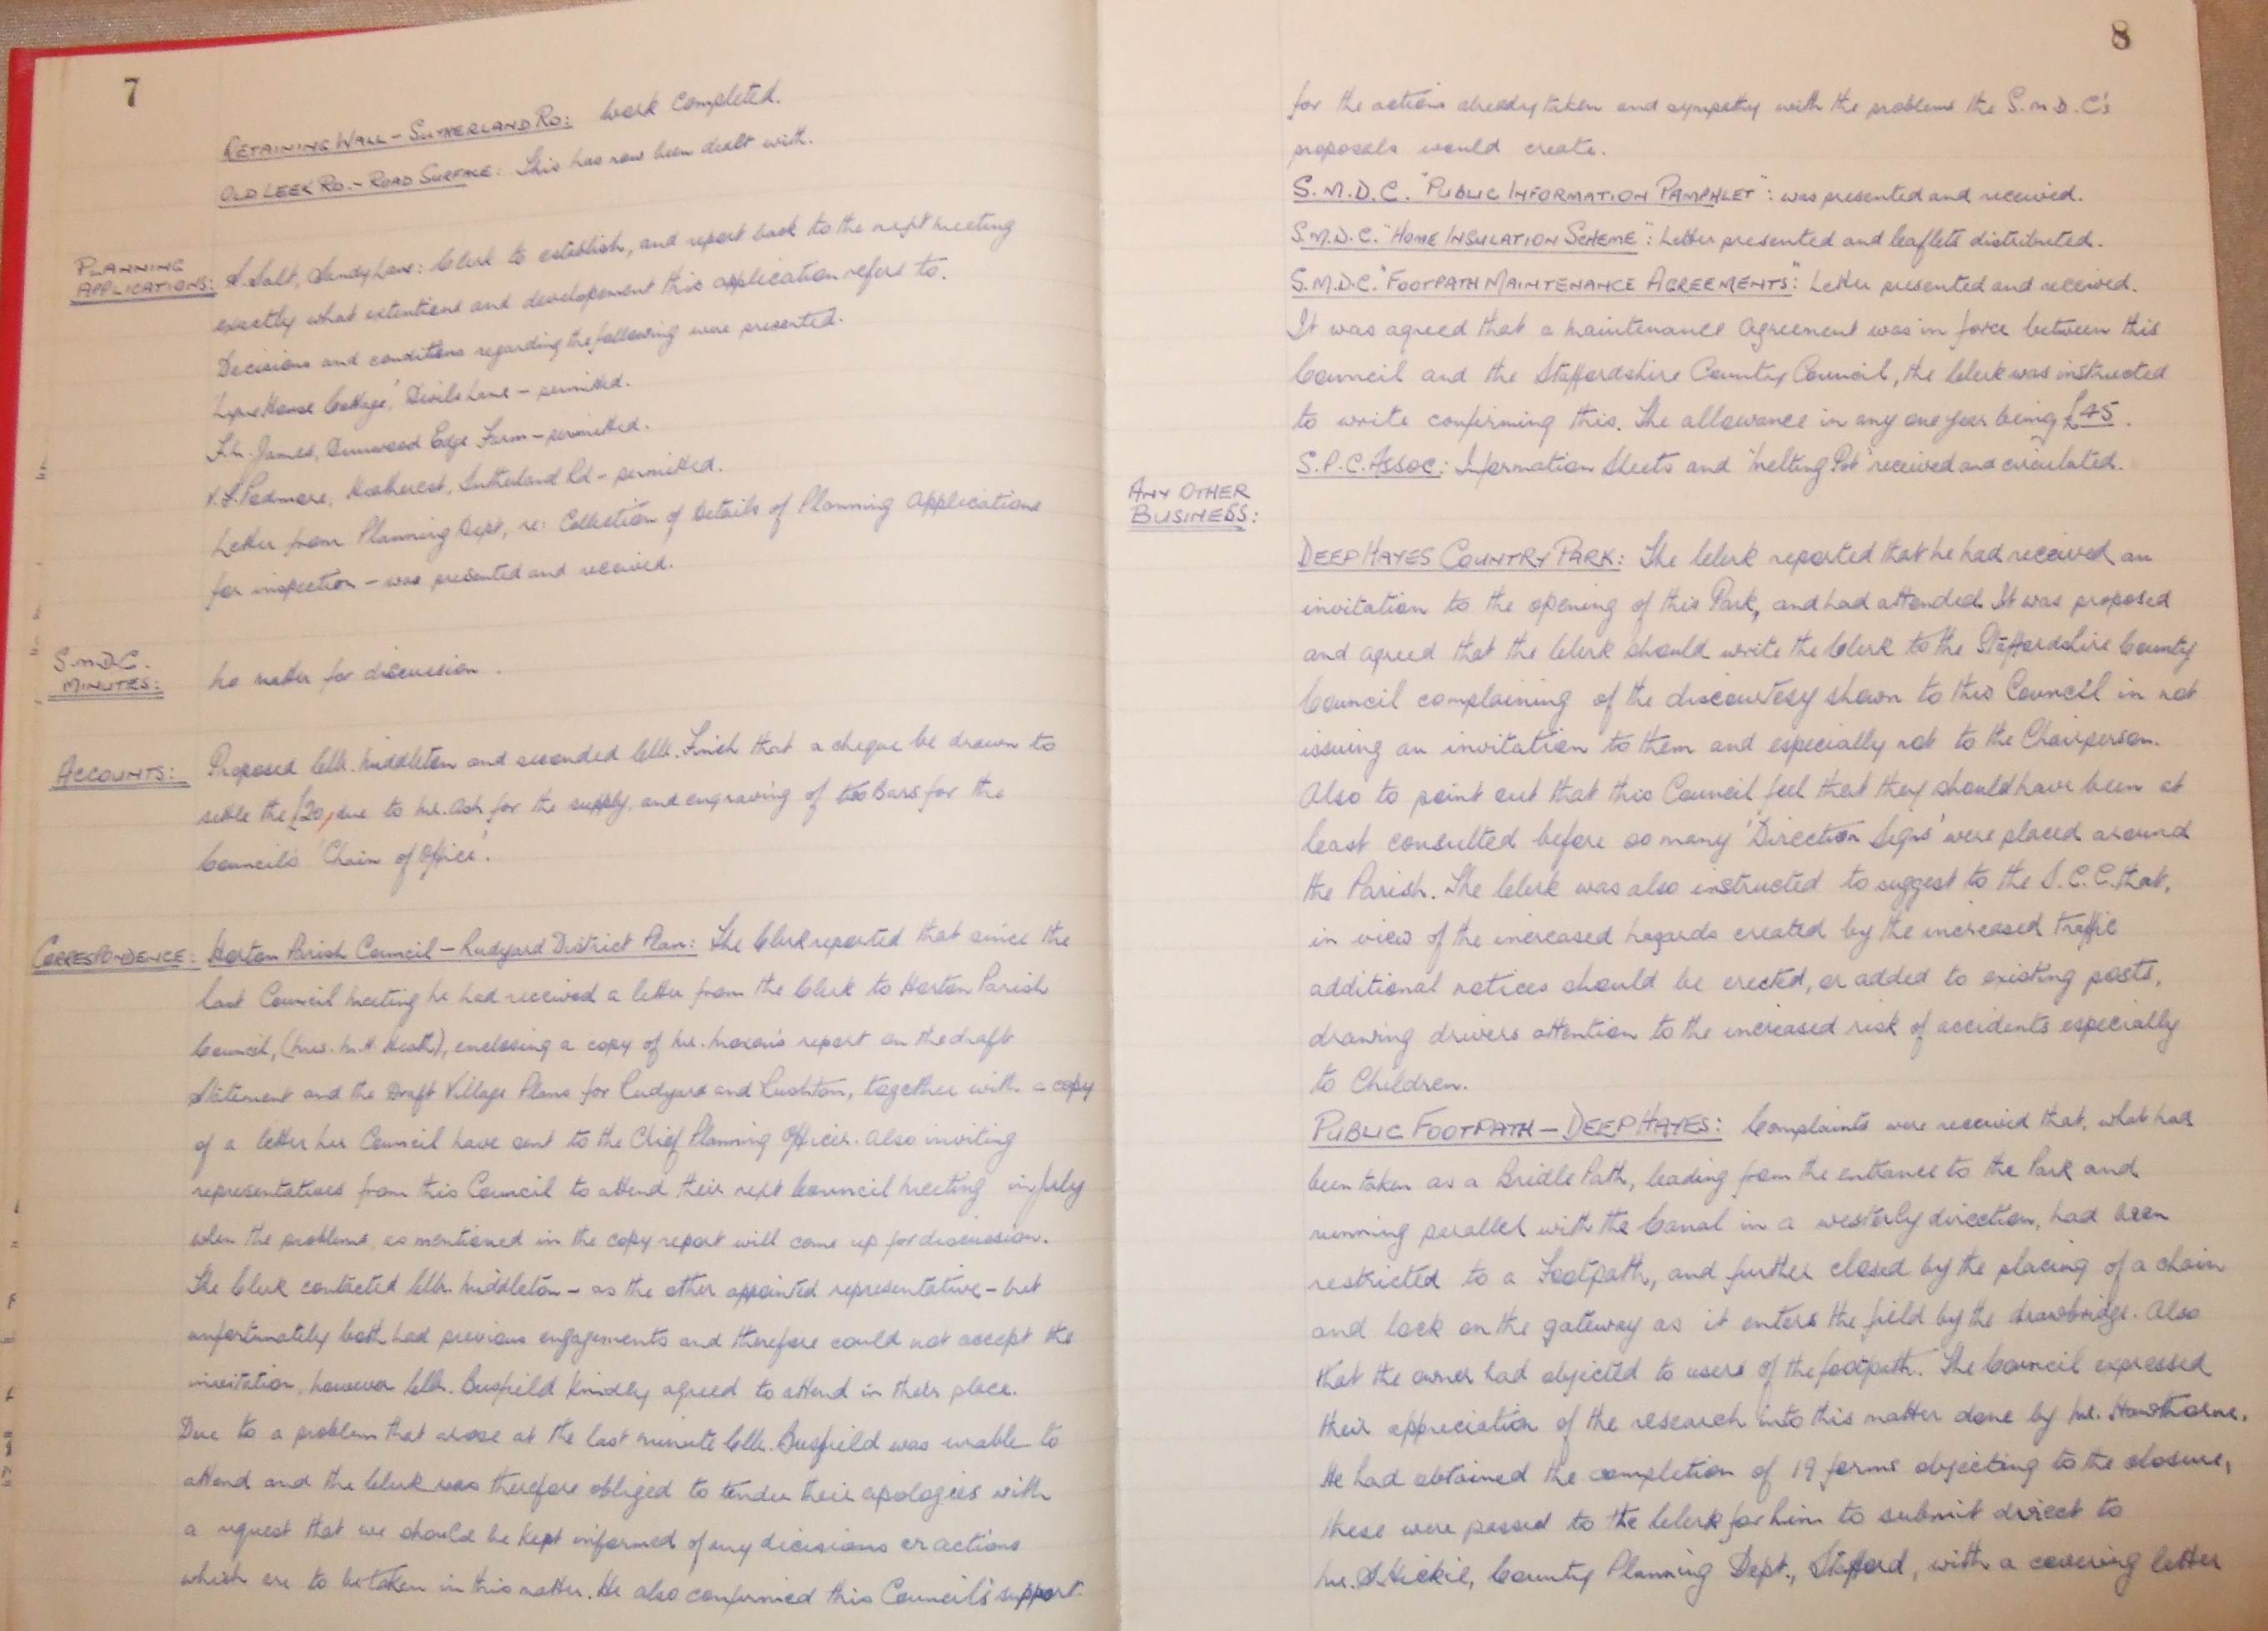 7
RETAINING WALL - SUTHERLAND RD: Work Completed.
OLD LEEK RD. - ROAD SURFACE: This has now been dealt with.
PLANNING
APPLICATIONS:
Salt, Sandy Lane: Clerk to establish, and report back to the next meeting
exactly what extentions and developement this application refers to.
Decisions and conditions regarding the following were presented.
Lyne House Cottage', Devils Lane - permitted.
James, Dunwood Edge Farm - permitted.
Podmore, Sutherland Rd - permitted.
Letter from Planning Dept, re: Collection of Details of Planning Applications
for inspection - was presented and received.
S.M.D.C.
MINUTES:
No matter for discussion.
ACCOUNTS:
Proposed Cllr. Middleton and seconded Cllr. Finch that a cheque be drawn to
settle the £20, due to Mr. Ash for the supply, and engraving of two Bars for the
Council's 'Chain of Office'.
CORRESPONDENCE:
Horton Parish Council - Rudyard District Plan: The Clerk reported that since the
last Council Meeting he had received a letter from the Clerk to Horton Parish
Council, (Mrs. M.H. Heath), enclosing a copy of Mr. Moxon's report on the draft
Statement and the Draft Village Plans for Rudyard and Rushton, together with a copy
of a letter her Council have sent to the Chief Planning Officer. Also inviting
representatives from this Council to attend their next Council Meeting in July
when the problems, as mentioned in the copy report will come up for discussion.
The Clerk contacted Cllr. Middleton - as the other appointed representative - but
unfortunately both had previous engagements and therefore could not accept the
invitation, however Cllr. Busfield kindly agreed to attend in their place.
Due to a problem that arose at the last minute Cllr. Busfield was unable to
attend and the Clerk was therefore obliged to tender their apologies with
a request that we should be kept informed of any decisions or actions
which are to be taken in this matter. He also confirmed this Council's support.
8
for the actions already taken and sympathy with the problems the S.M.D.C's
proposals would create.
S.M.D.C. "PUBLIC INFORMATION PAMPHLET": was presented and received.
S.M.D.C. "HOME INSULATION SCHEME": Letter presented and leaflets distributed.
S.M.D.C. "FOOTPATH MAINTENANCE AGREEMENTS": Letter presented and received.
It was agreed that a Maintenance Agreement was in force between this
Council and the Staffordshire County Council, the Clerk was instructed
to write confirming this. The allowance in any one year being £45.
S.P.C. ASSOC: Information Sheets and 'Melting Pot' received and circulated.
ANY OTHER
BUSINESS:
DEEP HAYES COUNTRY PARK: The Clerk reported that he had received an
invitation to the opening of this Park, and had attended. It was proposed
and agreed that the Clerk should write the Clerk to the Staffordshire County
Council complaining of the discourtesy shown to this Council in not
issuing an invitation to them and especially not to the Chairperson.
Also to point out that this Council feel that they should have been at
least consulted before so many 'Direction Signs' were placed around
the Parish. The Clerk was also instructed to suggest to the S.C.C. that,
in view of the increased hazards created by the increased traffic
additional notices should be erected, or added to existing posts,
drawing drivers attention to the increased risk of accidents especially
to Children.
PUBLIC FOOTPATH - DEEP HAYES: Complaints were received that, what had
been taken as a Bridle Path, leading from the entrance to the Park and
running parallel with the Canal in a westerly direction, had been
restricted to a Footpath, and further closed by the placing of a chain
and lock on the gateway as it enters the field by the drawbridge. Also
that the owner had objected to users of the footpath. The Council expressed
their appreciation of the research into this matter done by Mr. Hawthorne.
He had obtained the completion of 19 forms objecting to the closure,
these were passed to the Clerk for him to submit direct to
Mr. Hickie, County Planning Dept., Stafford, with a covering letter